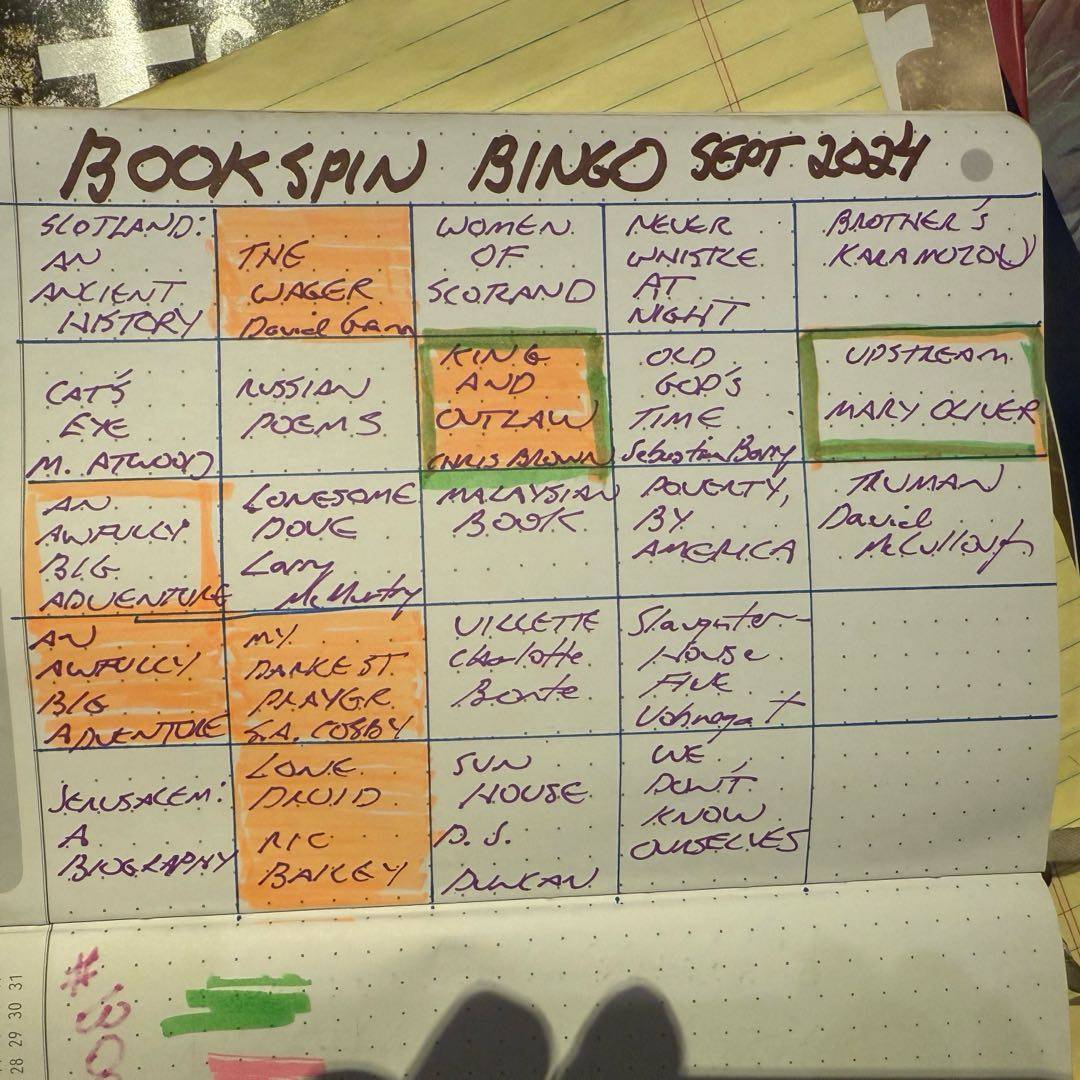 BOOKSPIN BINGO SEPT 2024
SCOTLAND:
AN
ANCIENT
HISTORY
THE
WAGER
David Grann
WOMEN
OF
SCOTLAND
NEVER
WHISTLE
AT
NIGHT
BROTHER'S
KARAMOZOV
CAT'S
EYE
M. ATWOOD
RUSSIAN
POEMS
KING
AND
OUTLAW
CHRIS BROWN
OLD
GOD'S
TIME
Sebastian Barry
UPSTREAM
MARY OLIVER
AN
AWFULLY
BIG
ADVENTURE
LONESOME
DOVE
Larry
McMurtry
MALAYSIAN
BOOK
POVERTY,
BY
AMERICA
TRUMAN
David
McCullough
AN
AWFULLY
BIG
ADVENTURE
MY
DARKEST
PLAYGR.
S.A. COSBY
VILLETTE
Charlotte
Bronte
Slaughter-
House
FIVE
Vohnegat
JERUSALEM:
A
BIOGRAPHY
LONE
DRUID
RIC
BAILEY
SUN
HOUSE
D. J.
DUNCAN
WE
DON'T
KNOW
OURSELVES
28 29 30 31